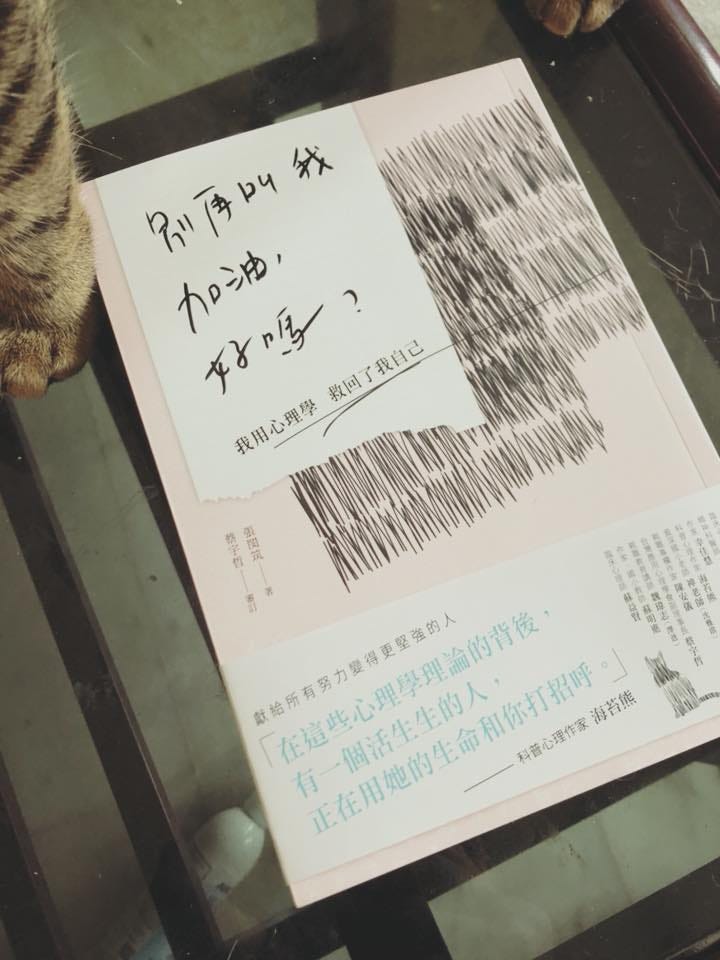 別再叫我
加油,
好嗎?
我用心理學 救回了我自己
張閔筑——著
蔡宇哲——審訂
獻給所有努力變得更堅強的人
「在這些心理學理論的背後,
有一個活生生的人,
正在用她的生命和你打招呼。」
——科普心理作家 海苔熊